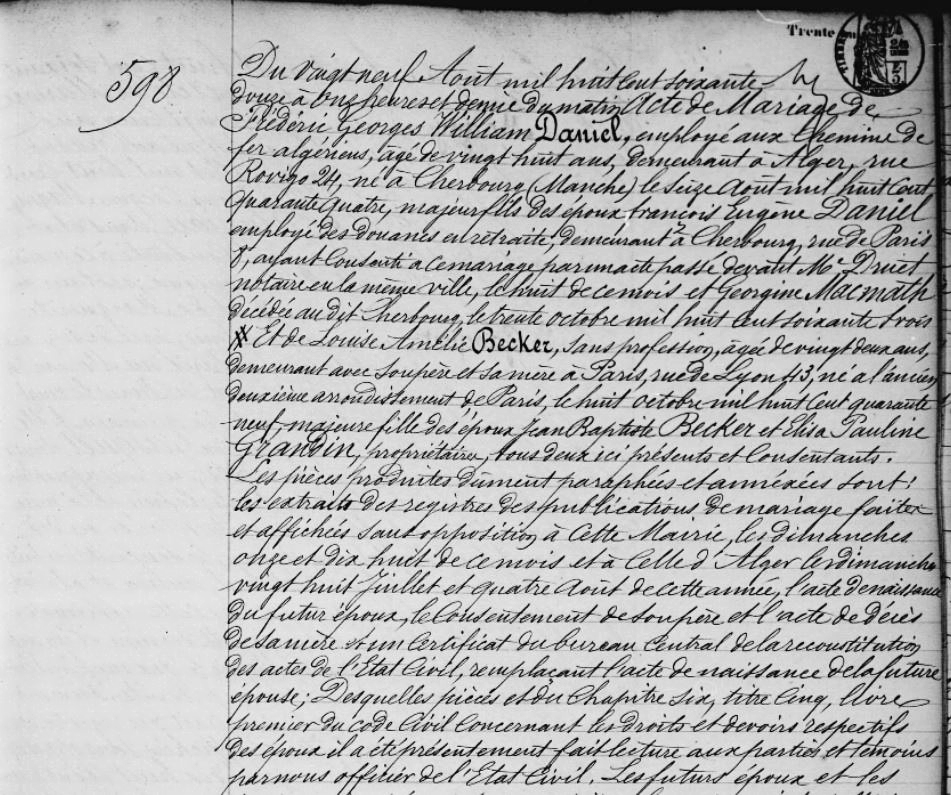 Trente
598
Du vingt neuf Aout mil huit cent soixante
douze à onze heures et demie du matin Acte de Mariage de
Frédéric Georges William Daniel, employé aux Chemins de
fer algériens, âgé de vingt huit ans, demeurant à Alger, rue
Rovigo 24, né à Cherbourg (Manche) le seize Août mil huit cent
quarante quatre, majeur fils des époux François Eugène Daniel
employé des douanes en retraite, demeurant à Cherbourg, rue de Paris
, ayant consenti a ce mariage par un acte passé devant Me Druet
notaire en la même ville, le huit de ce mois et Georgine Macmath
décédée au dit Cherbourg, le trente octobre mil huit cent soixante trois
Et de Louise Amélie Becker, sans profession, âgée de vingt deux ans,
demeurant avec son père et sa mère à Paris, rue de Lyon 43, né a l'ancien
deuxième arrondissement de Paris, le huit octobre mil huit cent quarante
neuf, majeure fille des époux Jean Baptiste Becker et Elisa Pauline
Grandin, propriétaires, tous deux ici présents et consentants.
Les pièces produites dument paraphées et annexées sont:
les extraits des registres des publications de mariage faites
et affichées sans opposition à cette Mairie, les dimanches
onze et dix huit de ce mois et à celle d'Alger les dimanches
vingt huit Juillet et quatre Août de cette année, l'acte de naissance
du futur époux, le consentement de son père et l'acte de décès
de sa mère et un certificat du bureau central de la reconstitution
des actes de l'Etat Civil, remplaçant l'acte de naissance de la future
épouse; Desquelles pièces et du Chapitre six, titre cinq, livre
premier du code Civil concernant les droits et devoirs respectifs
des époux il a été présentement fait lecture aux parties et témoins
par nous officier de l'Etat Civil. Les futurs époux et les